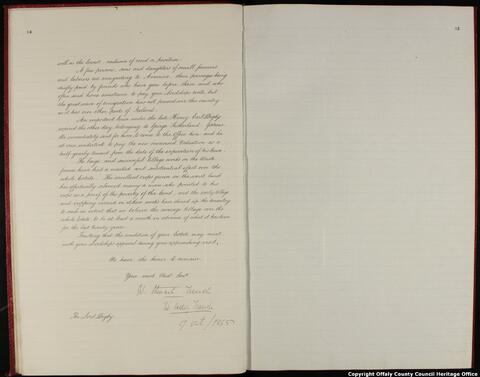 14
well as the lowest, valuation of rent is
A few persons, sons and daughters of small farmers
and laborers are emigrating to America, their passages being
chiefly paid by friends who have gone before them and who
often send home assistance to pay your Lordships rents, but
the great wave of emigration has not passed over this country
as it has over other parts of Ireland.
An important lease under the late Henry Earl Digby
expired the other day, belonging to George Sutherland.
He immediately sent for him to come to the Office here and he
at once undertook to pay the new increased Valuation as a
half yearly tenant from the date of the expiration of his lease.
The large and successful tillage works on the
farms have had a marked and substantial effect over the
whole Estate. The excellent crops grown on the worst land
has effectually silenced many a man who pointed to his
crops as a proof of the poverty of the land, and the early tillage
and cropping carried on at these works have stirred up the country
to such an extent that we believe the average tillage over the
whole Estate to be at least a month in advance of what it has been
for the last twenty years.
Trusting that the condition of your Estate may meet
with your Lordships approval during your approaching visit,
We have the honor to remain
Your most Obdt Servt
W. Steuart Trench
Trench
9 Oct / 1865
The Lord Digby.
15
© Copyright Offaly County Council Heritage Office